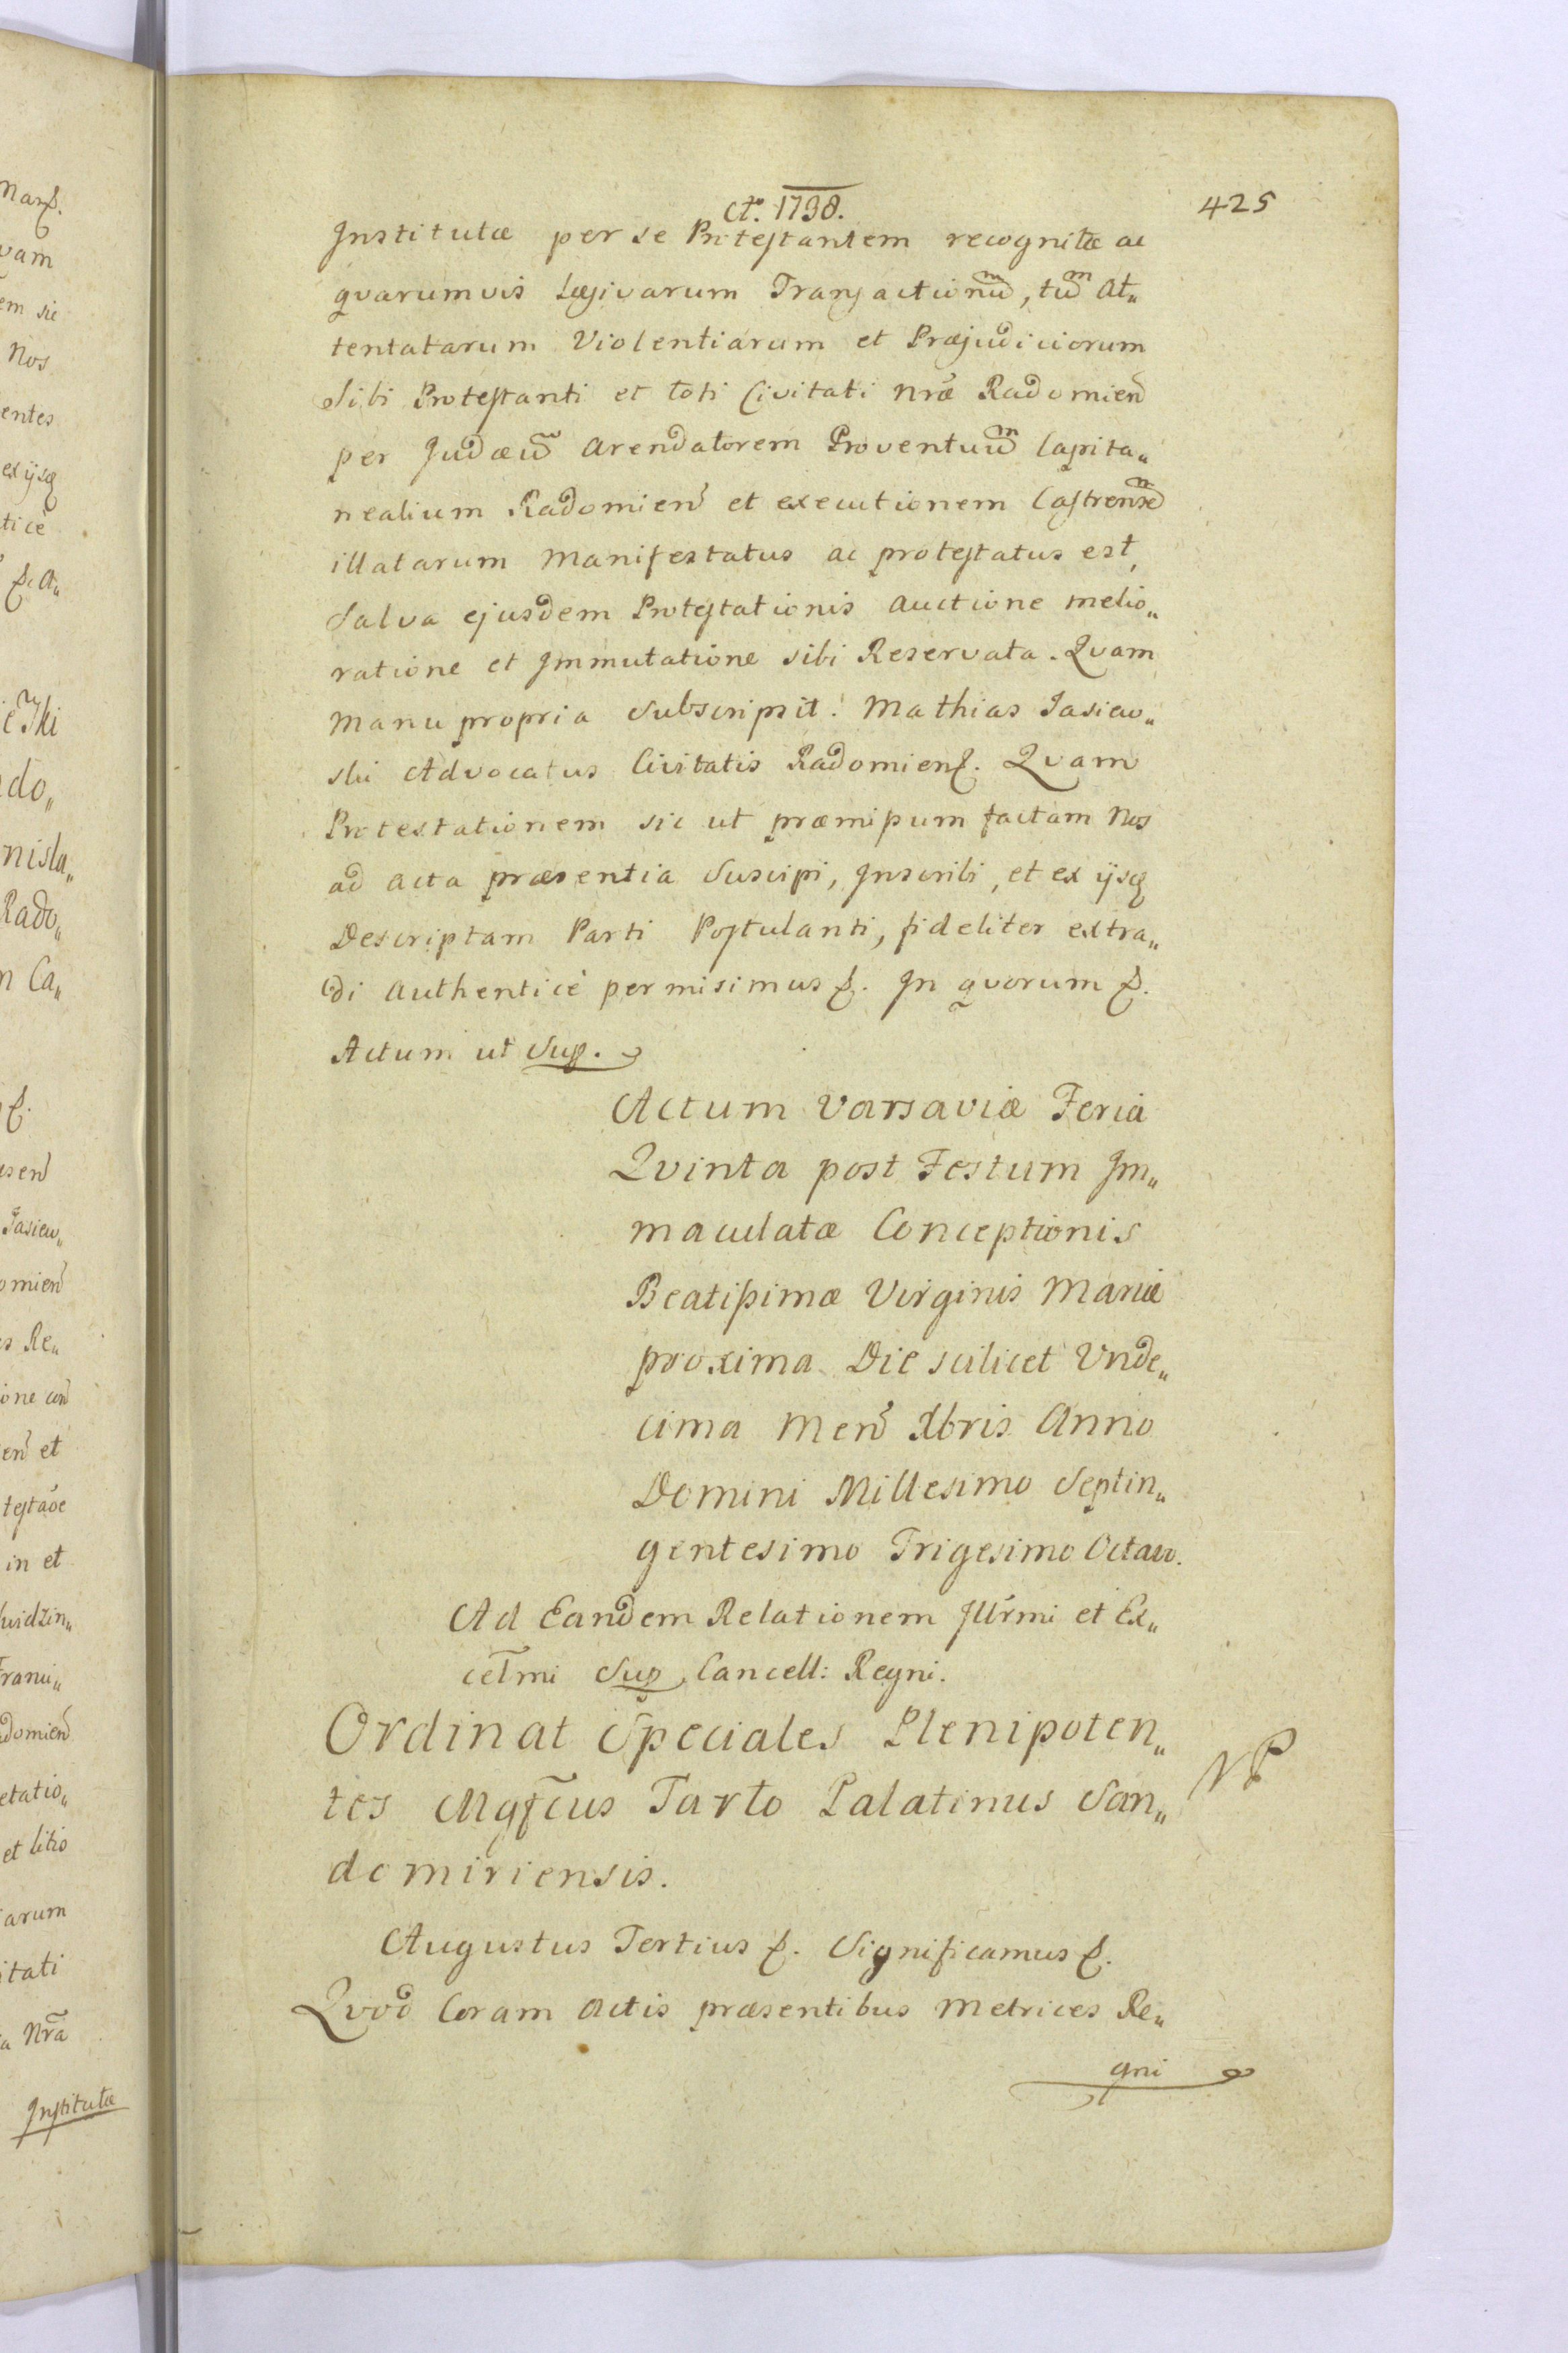 A̅o. 1738.
425
Institutæ per se Protestantem recognitæ ac
qvarumvis Lægivarum Transactionũm, tũm At„
tentatarum Violentiarum et Præjudiciorum
Sibi Protestanti et toti Civitati nr̃æ Radomień
per Judæũm Arendatorem Proventuũm Capita„
nealium Radomień et executionem Castrensẽm
illatarum Manifestatus ac protestatus est,
Salva ejusdem Protestationis Auctione melio„
ratione et Immutatione sibi Reservata. Qvam
Manu propria Subscripsit. Mathias Jasiew„
ski Advocatus Civitatis Radomien̄. Qvam
Protestationem sic ut præmissum factam Nos
ad Acta præsentia Suscipi, Inscribi, et ex ijsq
Descriptam Parti Postulanti, fideliter extra„
di Authenticè permisimus &. In qvorum &.
Actum ut Sup.
Actum Varsaviæ Feria
Qvinta post Festum Im„
maculatæ Conceptionis
Beatissimæ Virginis Mariæ
proxima Die scilicet Unde„
cima Meń Xbris Anno
Domini Millesimo Septin„
gentesimo Trigesimo Octavo.
Ad Eandem Relationem Illr̃mi et Ex„
cel̃mi Sup Cancell: Regni.
Ordinat Speciales Plenipoten„
tes Mgf̃cus Tarło Palatinus San„
domiriensis.
NP
Augustus Tertius &. Significamus &.
Qvod Coram Actis præsentibus Metrices Re„
gni
Nos
entes
ex ijsq
do„
nisla„
Rado„
Ca„
Jasiew„
omień
Re„
et
in et
domień
etatio„
et litio
arum
itati
Nr̃a
Institutæ